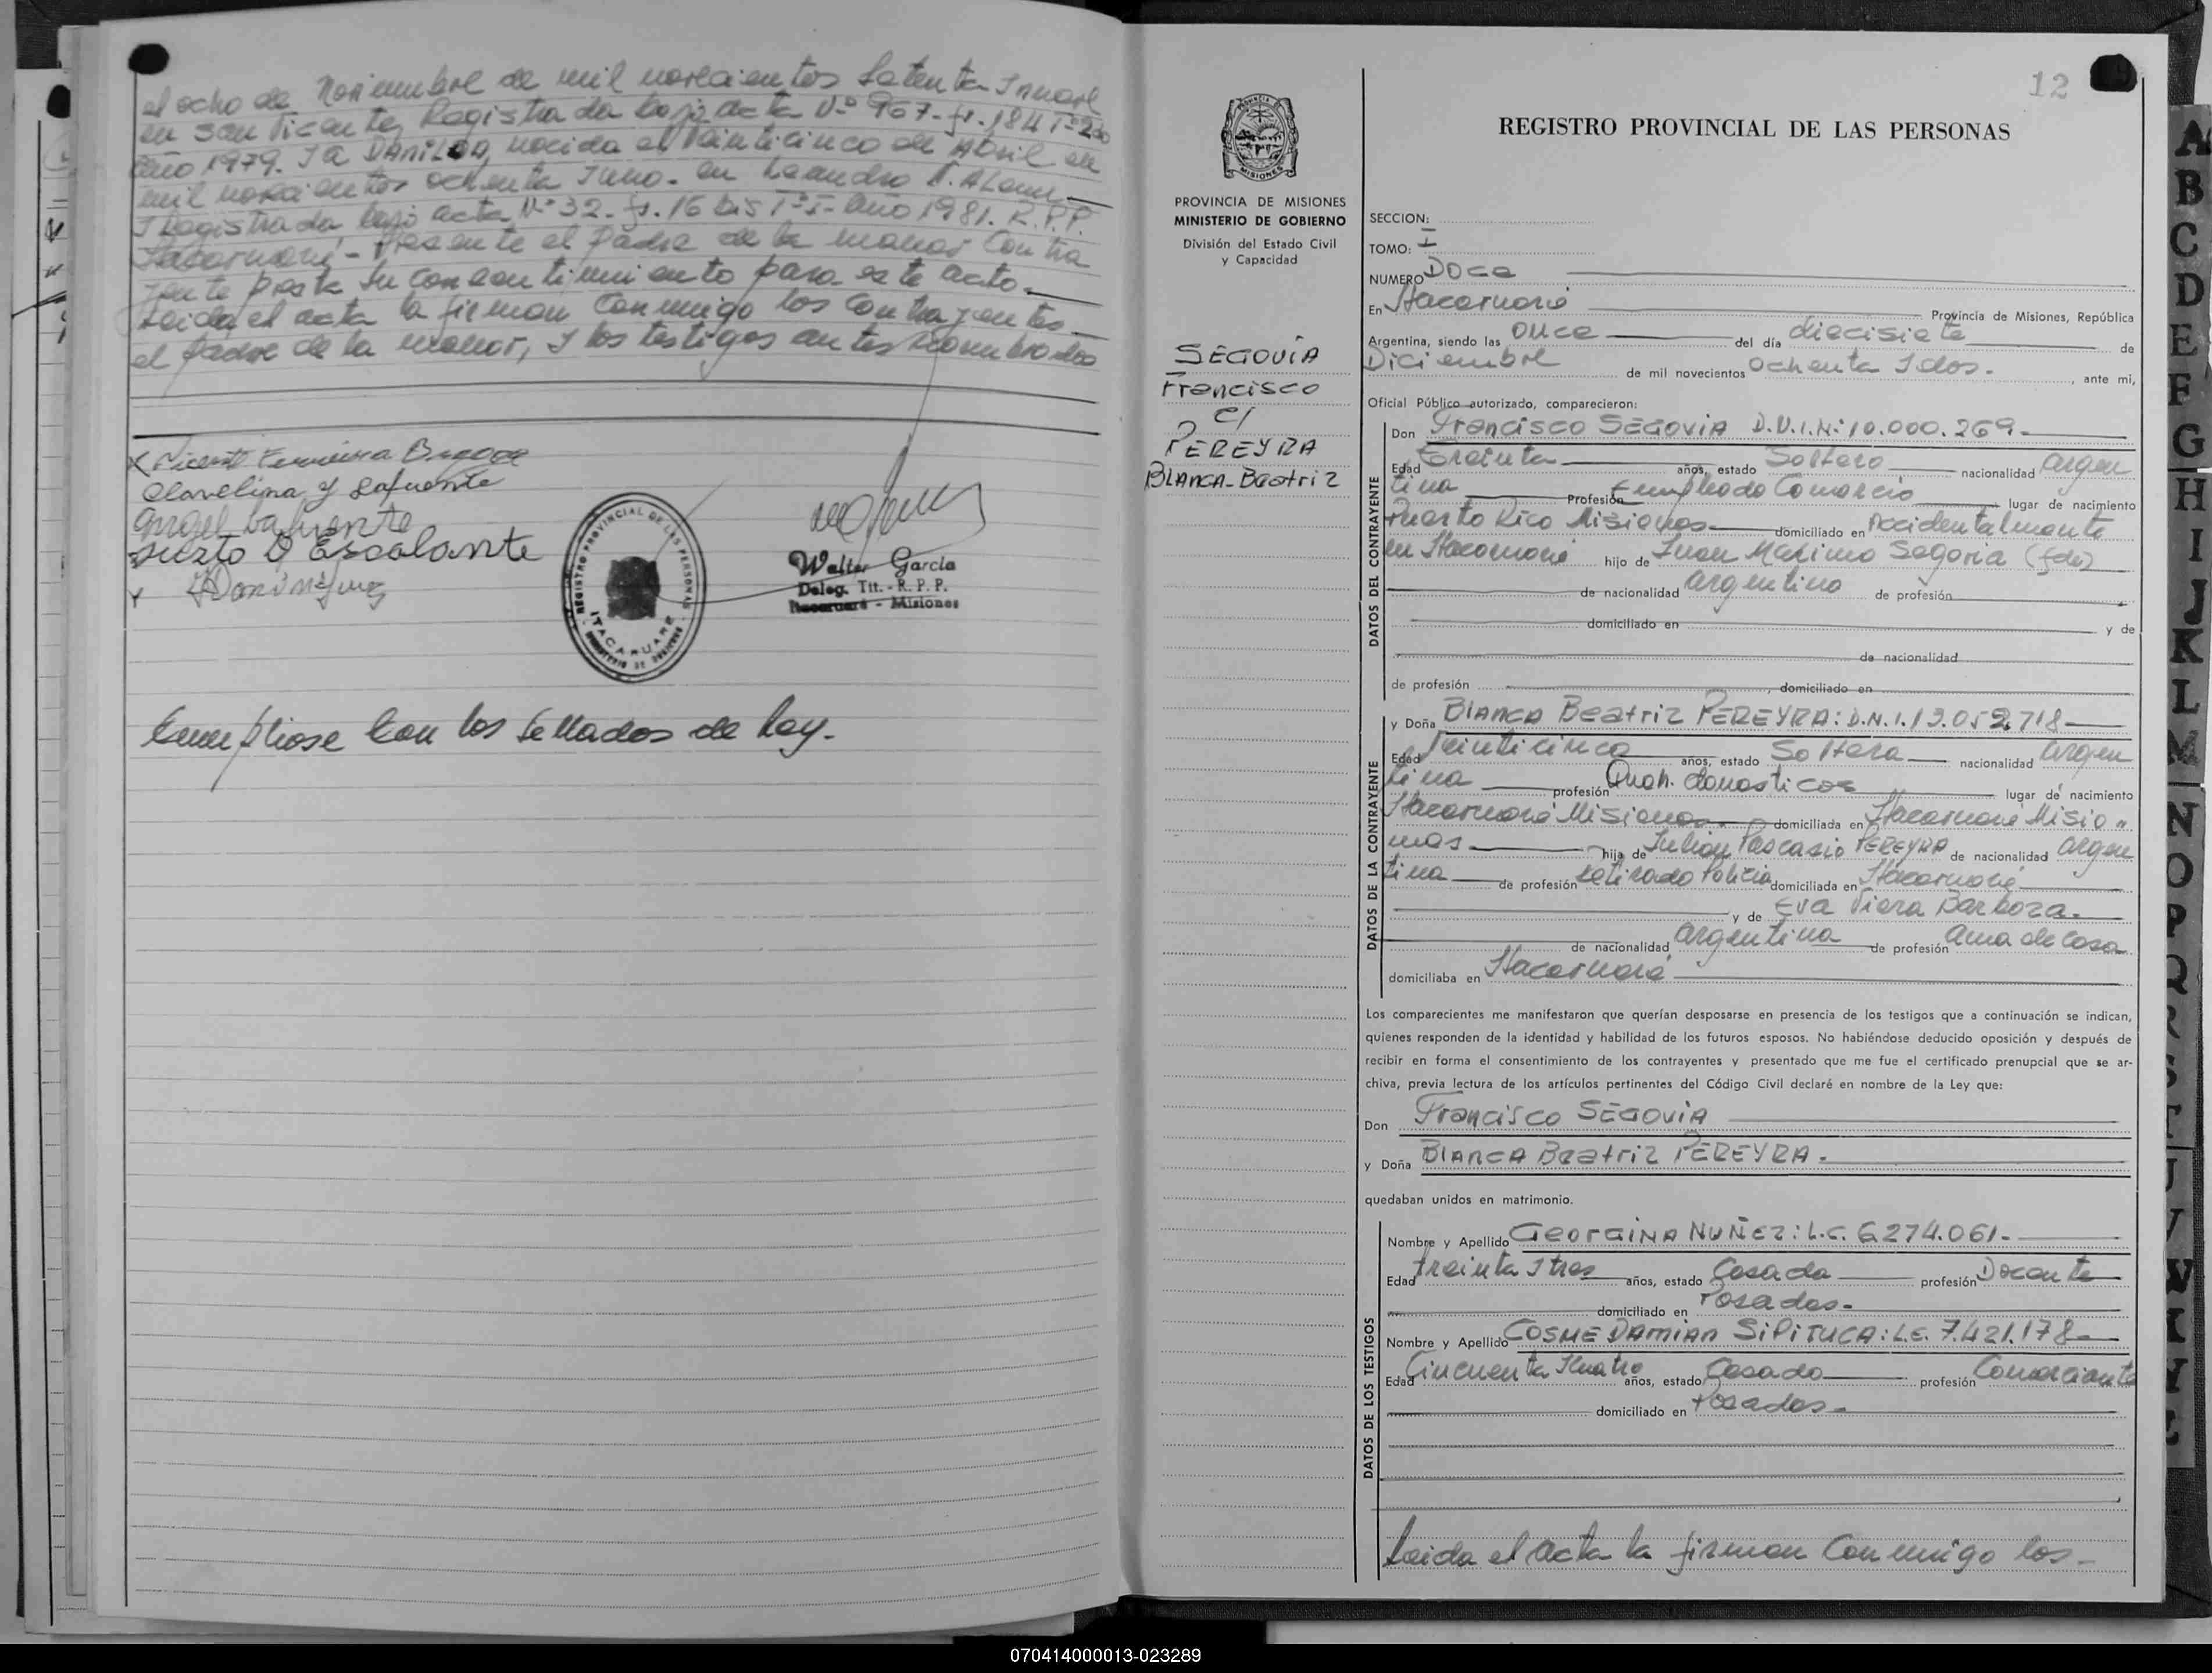 el ocho de Noviembre de mil novecientos setenta y nueve
en San Vicente, Registrada bajo acta Nº 967 - fº. 184 Tº 2do
Año 1979. Y a DANILDA, nacida el veinticinco de Abril de
mil novecientos ochenta y uno. en Leandro N. Alem
y Registrada bajo acta Nº 32. fº. 16 bis Tº I - Año 1981. R.P.P.
Itacaruaré - Presente el padre de la menor Contra
yente presta su consentimiento para este acto.
Leida el acta la firman conmigo los contrayentes
el padre de la menor, y los testigos antes nombrados
Clavelina y Lafuente
Angel Lafuente
Escalante
REGISTRO PROVINCIAL DE LAS PERSONAS
ITACARUARE
Walter García
Deleg. Tit. - R. P. P.
Itacaruaré - Misiones
Cumpliose con los sellados de ley.
12
PROVINCIA DE MISIONES
MINISTERIO DE GOBIERNO
División del Estado Civil
y Capacidad
SEGOVIA
Francisco
c/
PEREYRA
BLANCA-Beatriz
REGISTRO PROVINCIAL DE LAS PERSONAS
SECCION:
TOMO: I
NUMERO DOCE
En Itacaruaré Provincia de Misiones, República
Argentina, siendo las once del día diecisiete de
Diciembre de mil novecientos ochenta y dos. , ante mi,
Oficial Público autorizado, comparecieron:
DATOS DEL CONTRAYENTE
Don Francisco SEGOVIA D.N.I.Nº 10.000.269.
Edad treinta años, estado Soltero nacionalidad argen
tina Profesión Empleado Comercio lugar de nacimiento
Puerto Rico Misiones domiciliado en Accidentalmente
en Itacaruaré hijo de Juan Maximo Segovia (fdo)
de nacionalidad argentino de profesión
domiciliado en y de
de nacionalidad
de profesión , domiciliado en
DATOS DE LA CONTRAYENTE
y Doña BLANCA Beatriz PEREYRA: D.N.I. 13.052.718
Edad Veinticinco años, estado Soltera nacionalidad argen
tina profesión Queh. domesticos lugar de nacimiento
Itacaruaré Misiones. domiciliada en Itacaruaré Misio
nes hija de Julian Pascasio PEREYRA de nacionalidad argen
tina de profesión Retirado Policia domiciliada en Itacaruaré
y de Eva Viera Barboza.
de nacionalidad argentina de profesión ama de casa
domiciliaba en Itacaruaré
Los comparecientes me manifestaron que querían desposarse en presencia de los testigos que a continuación se indican,
quienes responden de la identidad y habilidad de los futuros esposos. No habiéndose deducido oposición y después de
recibir en forma el consentimiento de los contrayentes y presentado que me fue el certificado prenupcial que se ar-
chiva, previa lectura de los artículos pertinentes del Código Civil declaré en nombre de la Ley que:
Don Francisco SEGOVIA
y Doña BLANCA Beatriz PEREYRA.
quedaban unidos en matrimonio.
DATOS DE LOS TESTIGOS
Nombre y Apellido GEORGINA NUÑEZ: L.C. 6.274.061.
Edad treinta y tres años, estado Casada profesión Docente
domiciliado en Posadas.
Nombre y Apellido COSME DAMIAN SIPITUCA: L.E. 7.421.178
Edad Cincuenta y cuatro años, estado Casado profesión Comerciante
domiciliado en Posadas.
Leida el acta la firman conmigo los
A
B
C
D
E
F
G
H
I
J
K
L
M
N
O
P
Q
070414000013-023289